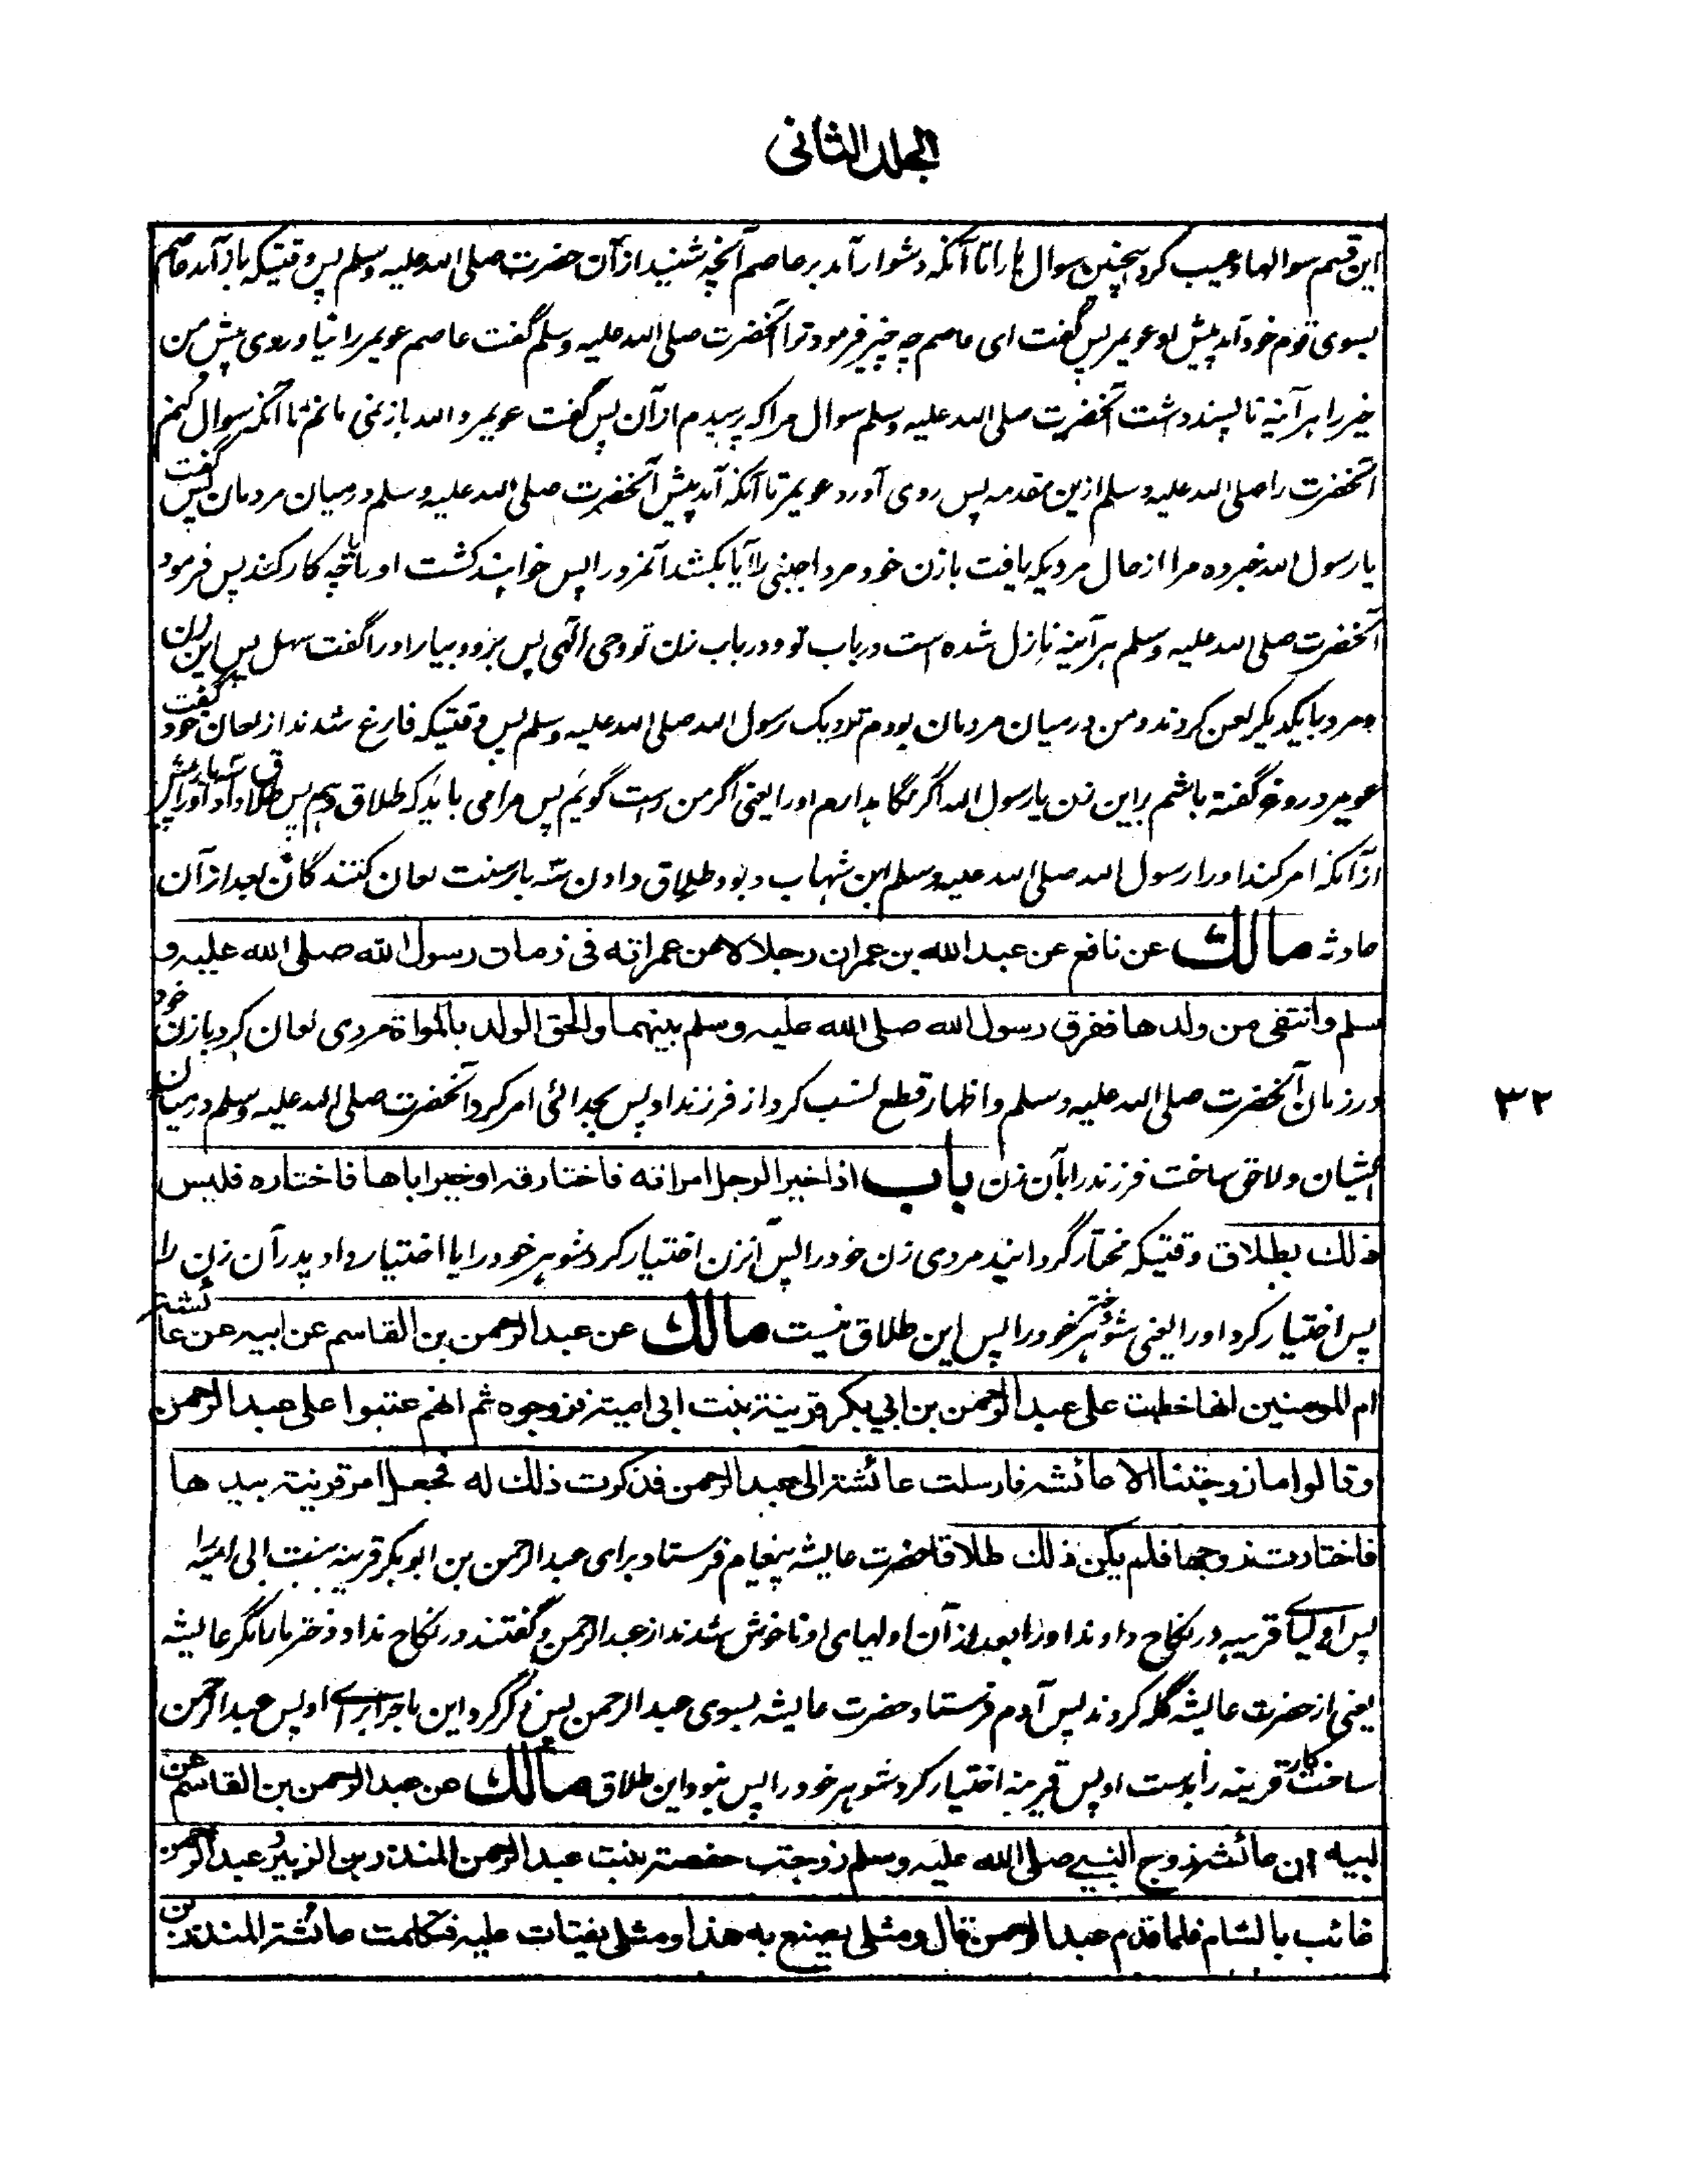 الجلد الثانی
این قسم سوالها و عیب کرد همچنین سوال را تا آنکه دشوار آمد بر عاصم آنچه شنید از آن حضرت صلی الله علیه وسلم پس وقتیکه باز آمد عاصم
بسوی قوم خود آمد پیش او عویمر پس گفت ای عاصم چه چیز فرمود ترا آنحضرت صلی الله علیه وسلم گفت عاصم عویمر را نیاوردی پیش من
خیر را هر آئینه ناپسند داشت آنحضرت صلی الله علیه وسلم سوال مرا که پرسیدم از آن پس گفت عویمر و الله باز نمی مانم تا آنکه سوال کنم
آنحضرت را صلی الله علیه وسلم ازین مقدمه پس روی آورد عویمر تا آنکه آمد پیش آنحضرت صلی الله علیه وسلم درمیان مردمان پس گفت
یا رسول الله خبر ده مرا از حال مردیکه یافت با زن خود مرد اجنبی را آیا بکشد آنمرد را پس خواهند کشت او را یا چه کار کند پس فرمود
آنحضرت صلی الله علیه وسلم هر آئینه نازل شده است در باب تو و در باب زن تو وحی الهی پس برو و بیار او را گفت سهل پس این زن
و مرد با یکدیگر لعن کردند و من درمیان مردمان بودم نزدیک رسول الله صلی الله علیه وسلم پس وقتیکه فارغ شدند از لعان خود گفت
عویمر دروغ گفته باشم بر این زن یا رسول الله اگر نگاهدارم او را یعنی اگر من راست گویم پس مرا می باید که طلاق دهم پس طلاق داد او را سه بار پیش
از آنکه امر کند او را رسول الله صلی الله علیه وسلم ابن شهاب و بود طلاق دادن سه بار سنت لعان کنندگان بعد از آن
حادثه مالك عن نافع عن عبدالله بن عمر ان رجلا لاعن امراته فی زمان رسول الله صلی الله علیه و
سلم وانتفی من ولدها ففرق رسول الله صلی الله علیه وسلم بینهما والحق الولد بالمراة مردی لعان کرد با زن خود
در زمان آنحضرت صلی الله علیه وسلم و اظهار قطع نسب کرد از فرزند او پس بجدائی امر کرد آنحضرت صلی الله علیه وسلم درمیان
ایشان و لاحق ساخت فرزند را بآن زن باب اذا خیر الرجل امراته فاختارته او خیر اباها فاختاره فلیس
ذلك بطلاق وقتیکه مختار گردانید مردی زن خود را پس آنزن اختیار کرد شوهر خود را یا اختیار داد پدر آن زن را
پس اختیار کرد او را یعنی شوهر دختر خود را پس این طلاق نیست مالك عن عبدالرحمن بن القاسم عن ابیه عن عائشة
ام المومنین انها خطبت علی عبدالرحمن بن ابی بکر قرینة بنت ابی امیة فزوجوه ثم انهم عتبوا علی عبدالرحمن
وقالوا ما زوجتنا الا عائشة فارسلت عائشة الی عبدالرحمن فذکرت ذلك له فجعل امر قرینة بیدها
فاختارت زوجها فلم یکن ذلك طلاقا حضرت عایشه پیغام فرستاد برای عبدالرحمن بن ابوبکر قرینه بنت ابی امیه را
پس اولیای قریبه در نکاح دادند او را بعد از آن اولیای او ناخوش شدند از عبدالرحمن و گفتند در نکاح نداد دختر ما را مگر عایشه
یعنی از حضرت عایشه گله کردند پس آدم فرستاد حضرت عایشه بسوی عبدالرحمن پس ذکر کرد این ماجرا برای او پس عبدالرحمن
ساخت کار قرینه را بدست او پس قرینه اختیار کرد شوهر خود را پس نبود این طلاق مالك عن عبدالرحمن بن القاسم عن
ابیه ان عائشة زوج النبی صلی الله علیه وسلم زوجت حفصة بنت عبدالرحمن المنذر بن الزبیر و عبدالرحمن
غائب بالشام فلما قدم عبدالرحمن قال و مثلی یصنع به هذا و مثلی یفتات علیه فکلمت عائشة المنذر بن
۳۲